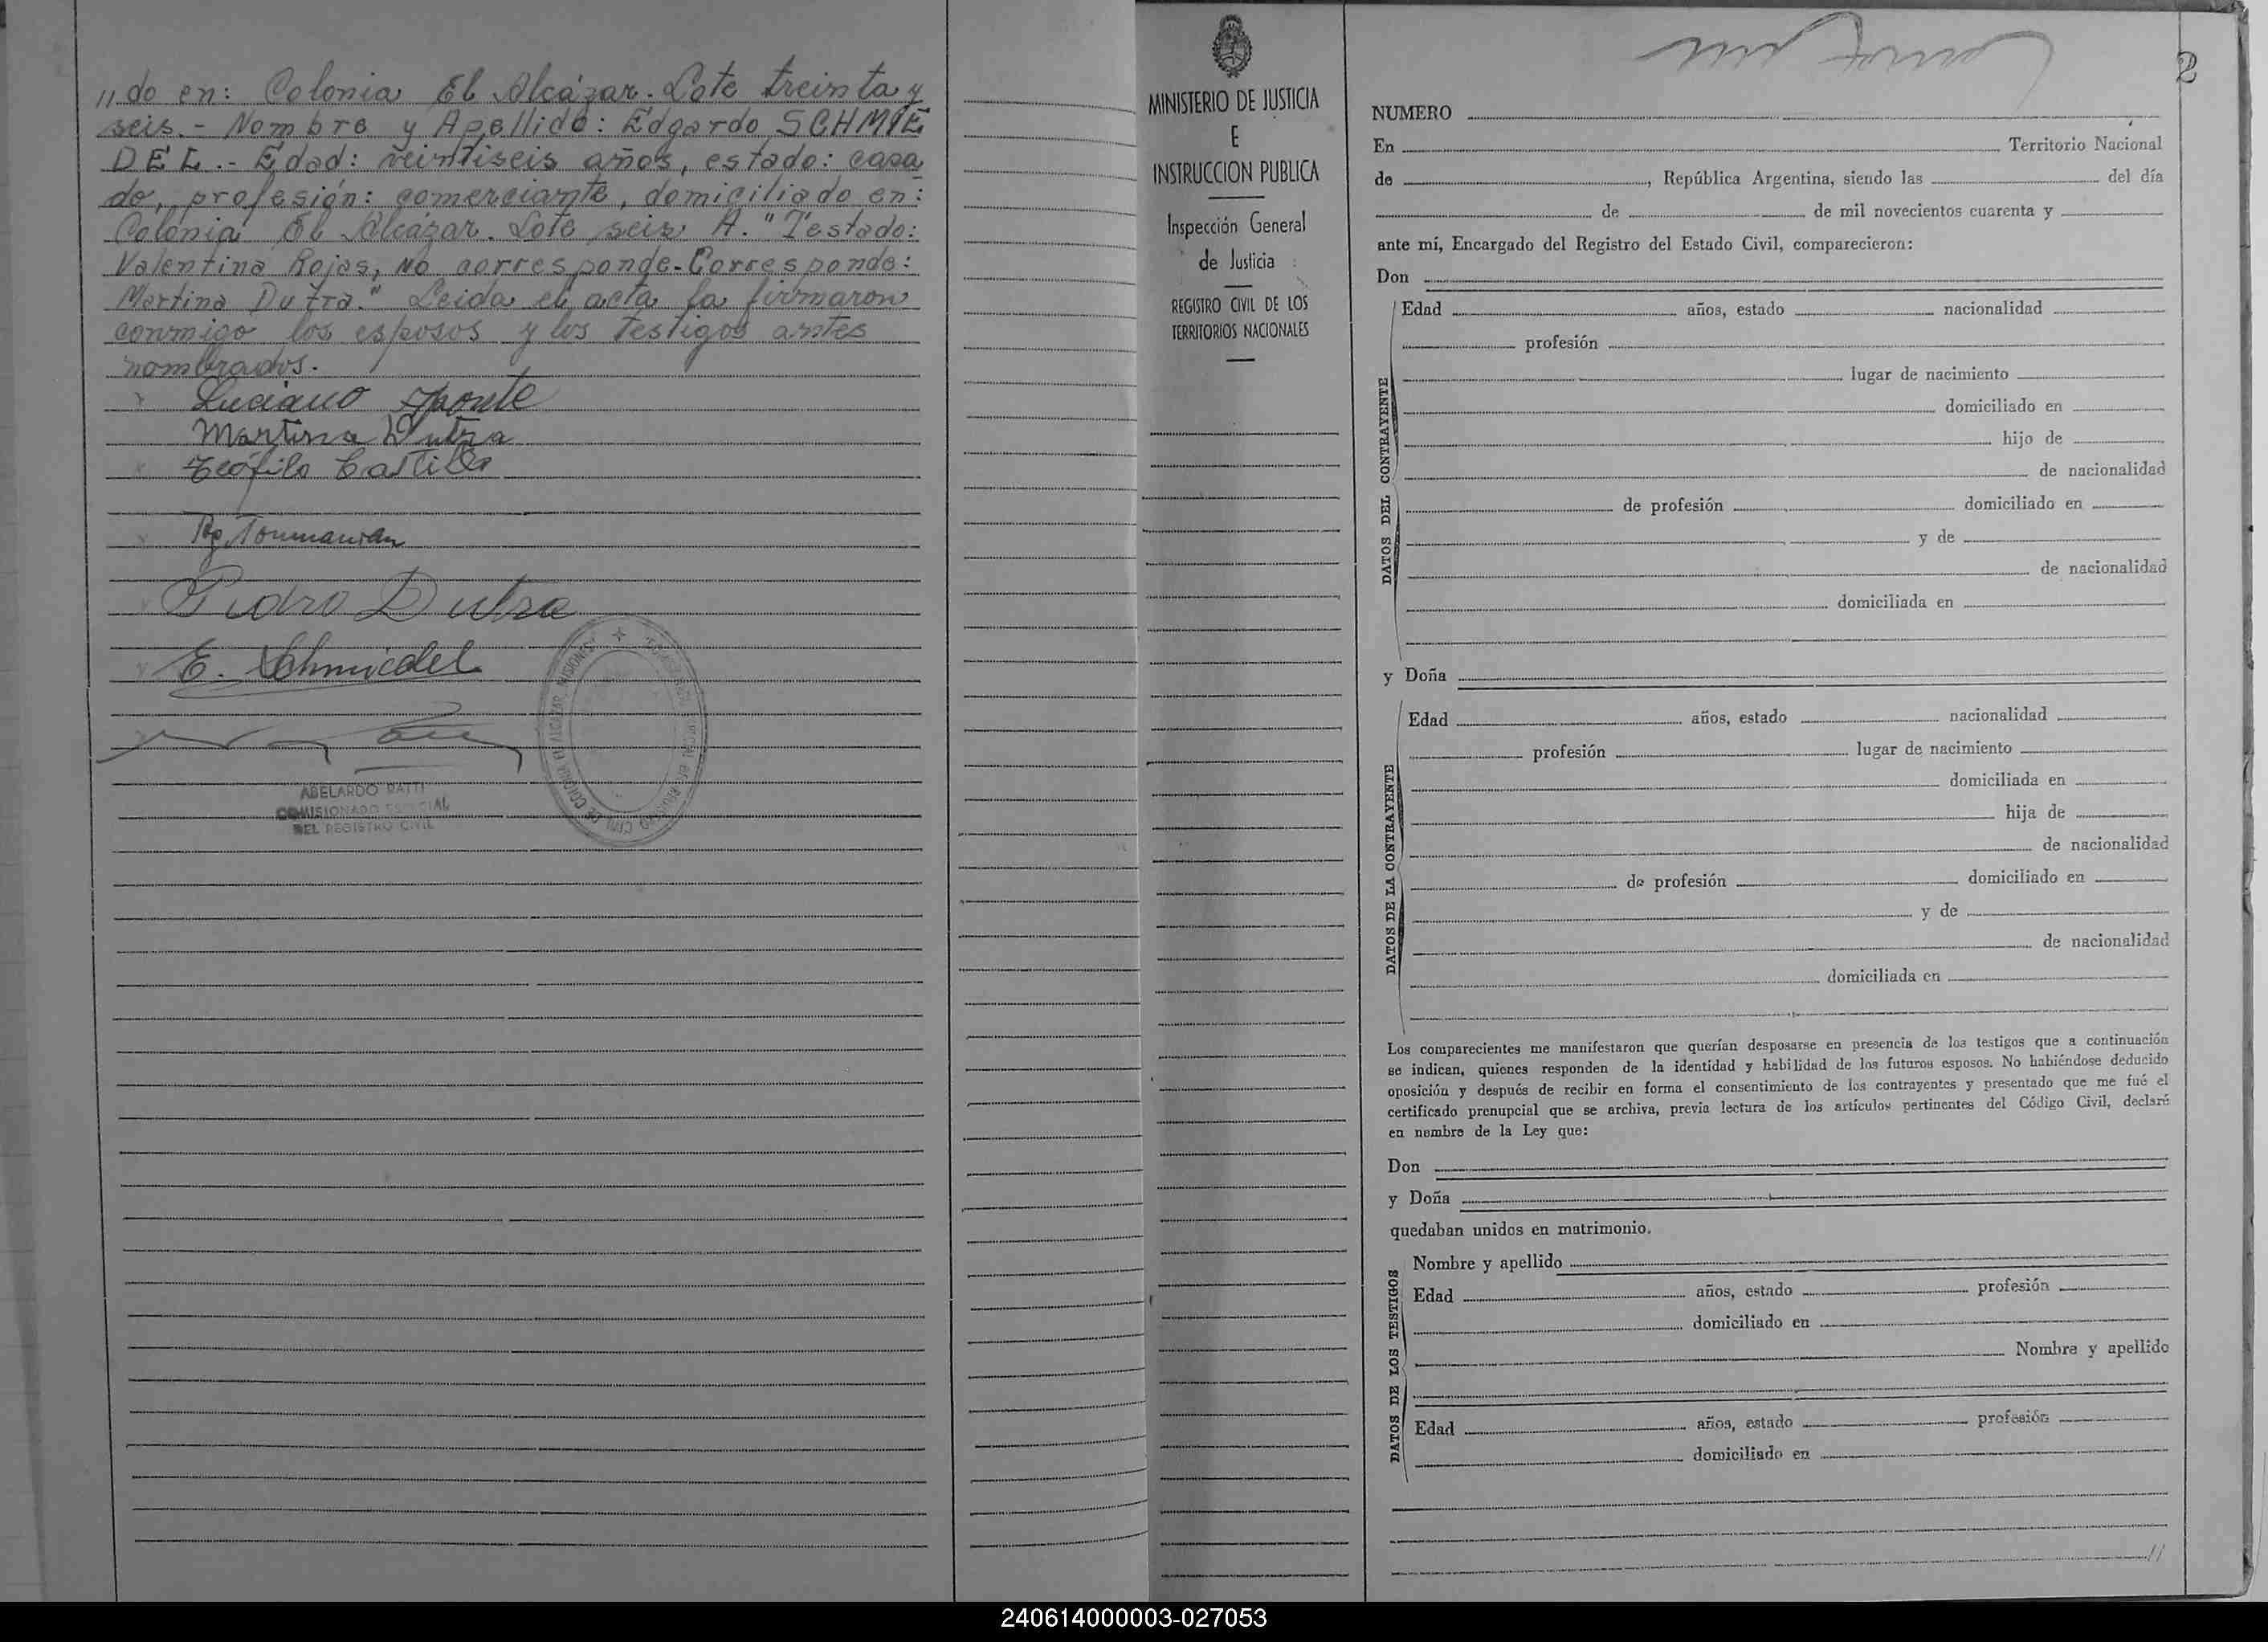 //do en: Colonia El Alcázar. Lote treinta y
seis.- Nombre y Apellido: Edgardo SCHMIE
DEL.- Edad: veintiseis años, estado: casa
do, profesión: comerciante, domiciliado en:
Colonia El Alcázar. Lote seis A. "Testado:
Valentina Rojas, No corresponde-Corresponde:
Martina Dutra." Leida el acta la firmaron
conmigo los esposos y los testigos antes
nombrados.
Luciano Aponte
Martina Dutra
Teófilo Castillo
Toumanian
Pedro Dutra
E. Schmiedel
ABELARDO PATTI
COMISIONADO ESPECIAL
DEL REGISTRO CIVIL
MINISTERIO DE JUSTICIA
E
INSTRUCCION PUBLICA
Inspección General
de Justicia
REGISTRO CIVIL DE LOS
TERRITORIOS NACIONALES
2
NUMERO
En Territorio Nacional
de , República Argentina, siendo las del día
de de mil novecientos cuarenta y
ante mí, Encargado del Registro del Estado Civil, comparecieron:
Don
DATOS DEL CONTRAYENTE
Edad años, estado nacionalidad
profesión
lugar de nacimiento
domiciliado en
hijo de
de nacionalidad
de profesión domiciliado en
y de
de nacionalidad
domiciliada en
y Doña
DATOS DE LA CONTRAYENTE
Edad años, estado nacionalidad
profesión lugar de nacimiento
domiciliada en
hija de
de nacionalidad
de profesión domiciliado en
y de
de nacionalidad
domiciliada en
Los comparecientes me manifestaron que querían desposarse en presencia de los testigos que a continuación
se indican, quienes responden de la identidad y habilidad de los futuros esposos. No habiéndose deducido
oposición y después de recibir en forma el consentimiento de los contrayentes y presentado que me fué el
certificado prenupcial que se archiva, previa lectura de los artículos pertinentes del Código Civil, declaré
en nombre de la Ley que:
Don
y Doña
quedaban unidos en matrimonio.
DATOS DE LOS TESTIGOS
Nombre y apellido
Edad años, estado profesión
domiciliado en
Nombre y apellido
Edad años, estado profesión
domiciliado en
//
240614000003-027053